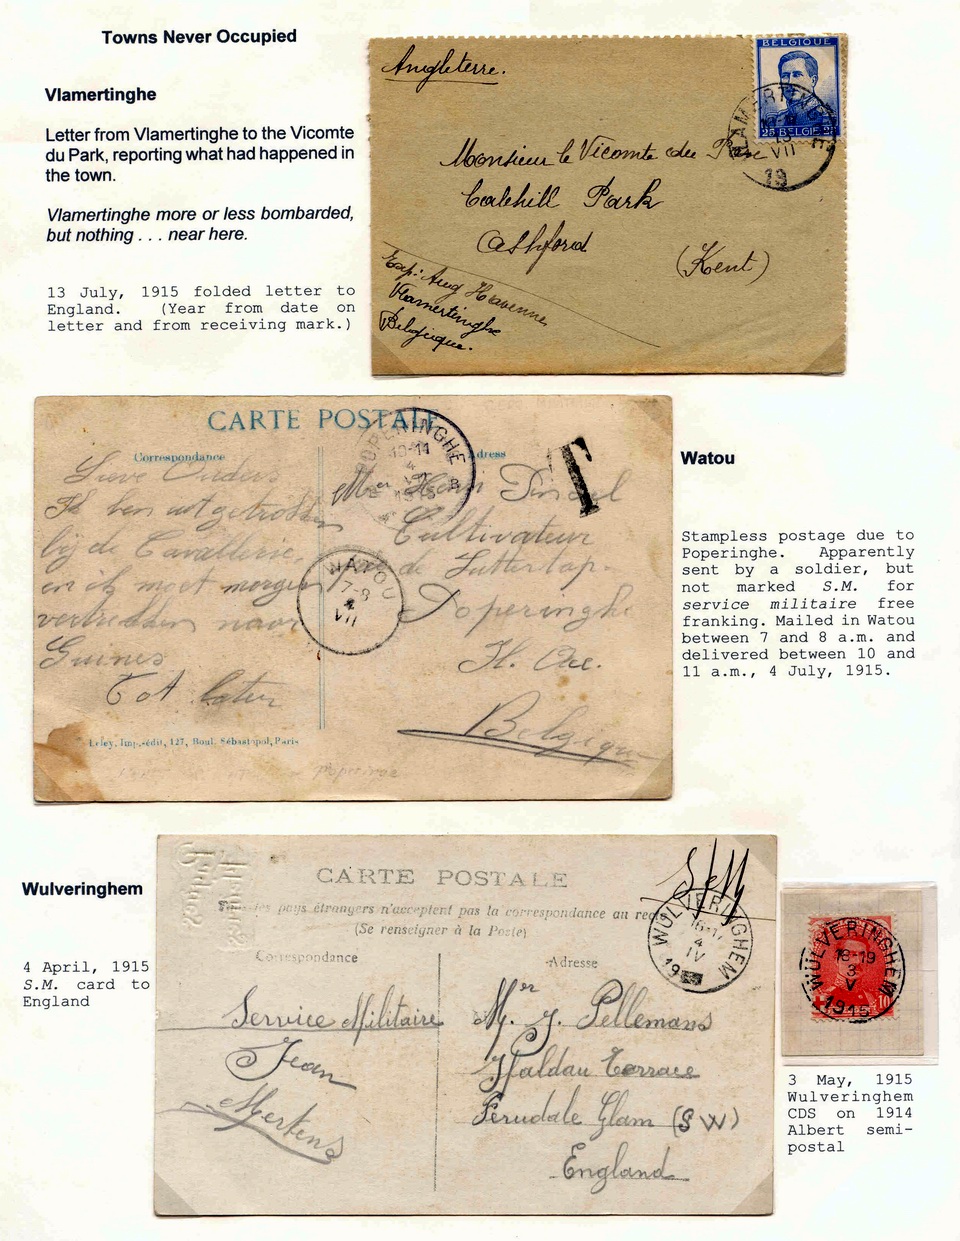 Towns Never Occupied
Vlamertinghe
Letter from Vlamertinghe to the Vicomte
du Park, reporting what had happened in
the town.
Vlamertinghe more or less bombarded,
but nothing . . . near here.
13 July, 1915 folded letter to
England. (Year from date on
letter and from receiving mark.)
Angleterre.
BELGIQUE
25 BELGIË 25
VLAMERTINGHE
13
VII
19
Monsieur le Vicomte du Parc
Calehill Park
Ashford
(Kent)
Exp: Aug Havenne
Vlamertinghe
Belgique.
CARTE POSTALE
Correspondance
Adresse
POPERINGHE
10-11
4
VII
1915
B
T
Lieve Ouders
Ik ben uitgetrokken
bij de Cavallerie,
en ik moet morgen
vertrekken naar
Guines
Tot later
WATOU
7-8
4
VII
Mer Henri
Cultivateur
Poperinghe
Fl. Occ.
Belgique
Leley, Imp.-édit, 127, Boul. Sébastopol, Paris
Poperinge
Watou
Stampless postage due to
Poperinghe. Apparently
sent by a soldier, but
not marked S.M. for
service militaire free
franking. Mailed in Watou
between 7 and 8 a.m. and
delivered between 10 and
11 a.m., 4 July, 1915.
Wulveringhem
4 April, 1915
S.M. card to
England
CARTE POSTALE
les pays étrangers n'acceptent pas la correspondance au recto
(Se renseigner à la Poste)
Correspondance
Adresse
S.M
WULVERINGHEM
16-17
4
IV
19
Service Militaire
Jean
Mertens
Mr J. Pellemans
Haldau Terrace
Ferndale Glam (SW)
England
WULVERINGHEM
18-19
3
V
1915
10
3 May, 1915
Wulveringhem
CDS on 1914
Albert semi-
postal